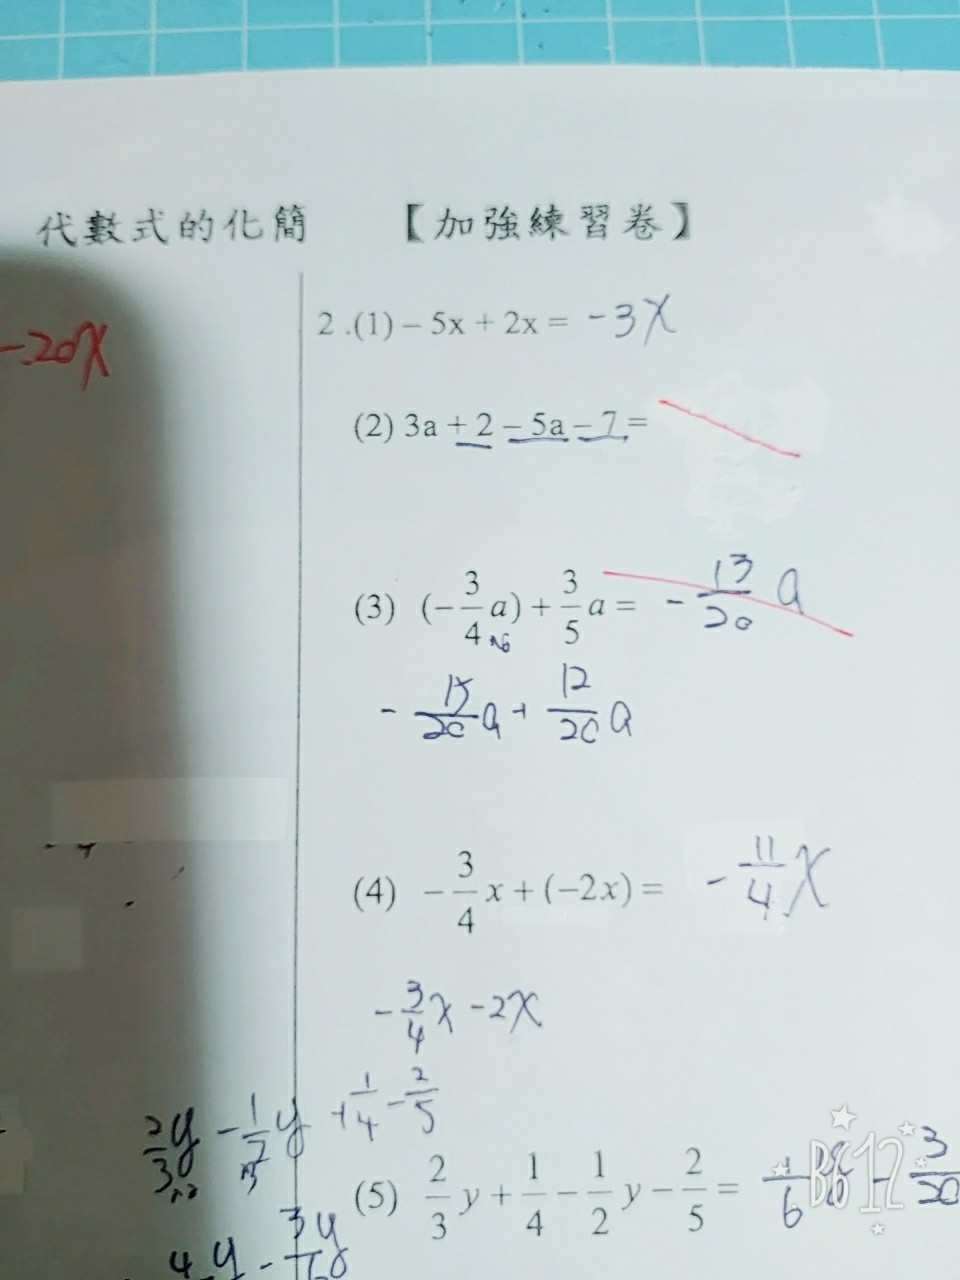 代數式的化簡 【加強練習卷】
-20x
2.(1) – 5x + 2x = -3x
(2) 3a + 2 – 5a – 7 =
(3) (-3/4 a) + 3/5 a = - 13/20 a
- 15/20 a + 12/20 a
(4) - 3/4 x + (-2x) = - 11/4 x
- 3/4 x - 2x
2/3 y - 1/2 y + 1/4 - 2/5
(5) 2/3 y + 1/4 - 1/2 y - 2/5 = 1/6 y - 3/20
4/ y - 3/6 y
B612